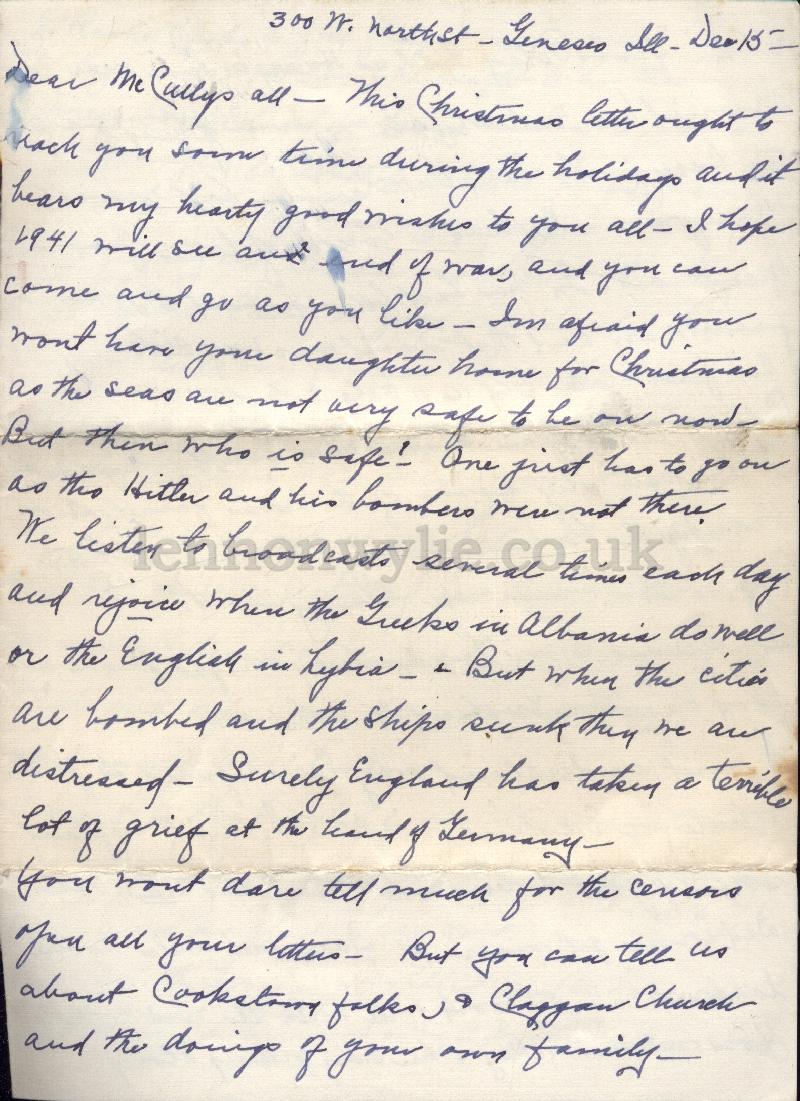 300 W. North St - Geneseo Ill - Dec 15 -
Dear McCullys all - This Christmas letter ought to
reach you some time during the holidays and it
bears my hearty good wishes to you all - I hope
1941 will see an end of war, and you can
come and go as you like - Im afraid you
wont have your daughter home for Christmas
as the seas are not very safe to be on now -
But then who is safe? - One just has to go on
as tho Hitler and his bombers were not there.
We listen to broadcasts several times each day
lennonwylie.co.uk
and rejoice when the Greeks in Albania do well
or the English in Lybia - & But when the cities
are bombed and the ships sunk then we are
distressed - Surely England has taken a terrible
lot of grief at the hand of Germany -
You wont dare tell much for the censors
open all your letters - But you can tell us
about Cookstown folks, & Claggan Church
and the doings of your own family -